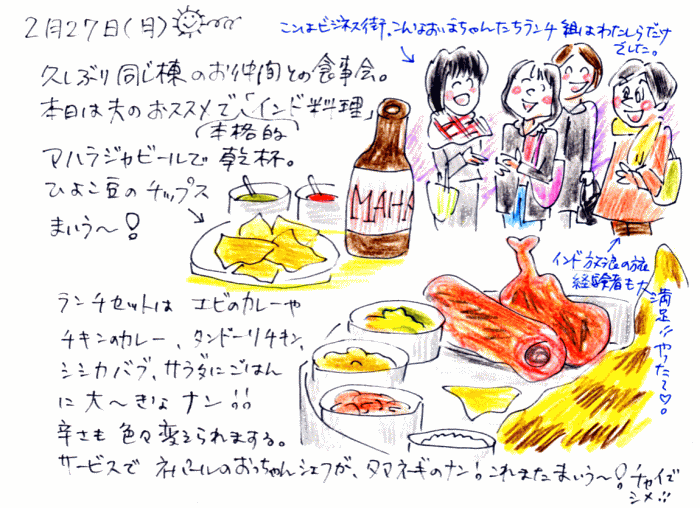 2月27日(月)
こんはビジネス街。こんなおばちゃんたちランチ組はわたしらだけ
でした。
久しぶり同じ棟のお仲間との食事会。
本日は夫のおススメで、「インド料理」
(本格的)
マハラジャビールで乾杯。
ひよこ豆のチップス
まいう〜!
MAHA
インド放浪の旅
経験者も大
満足!!やったー♡。
ランチセットは エビのカレーや
チキンのカレー、タンドーリチキン、
シシカバブ、サラダにごはん
に大〜きなナン!!
辛さも色々変えられまする。
サービスで ネパールのおっちゃんシェフが、タマネギのナン!これまたまいう〜!チャイで
シメ!!